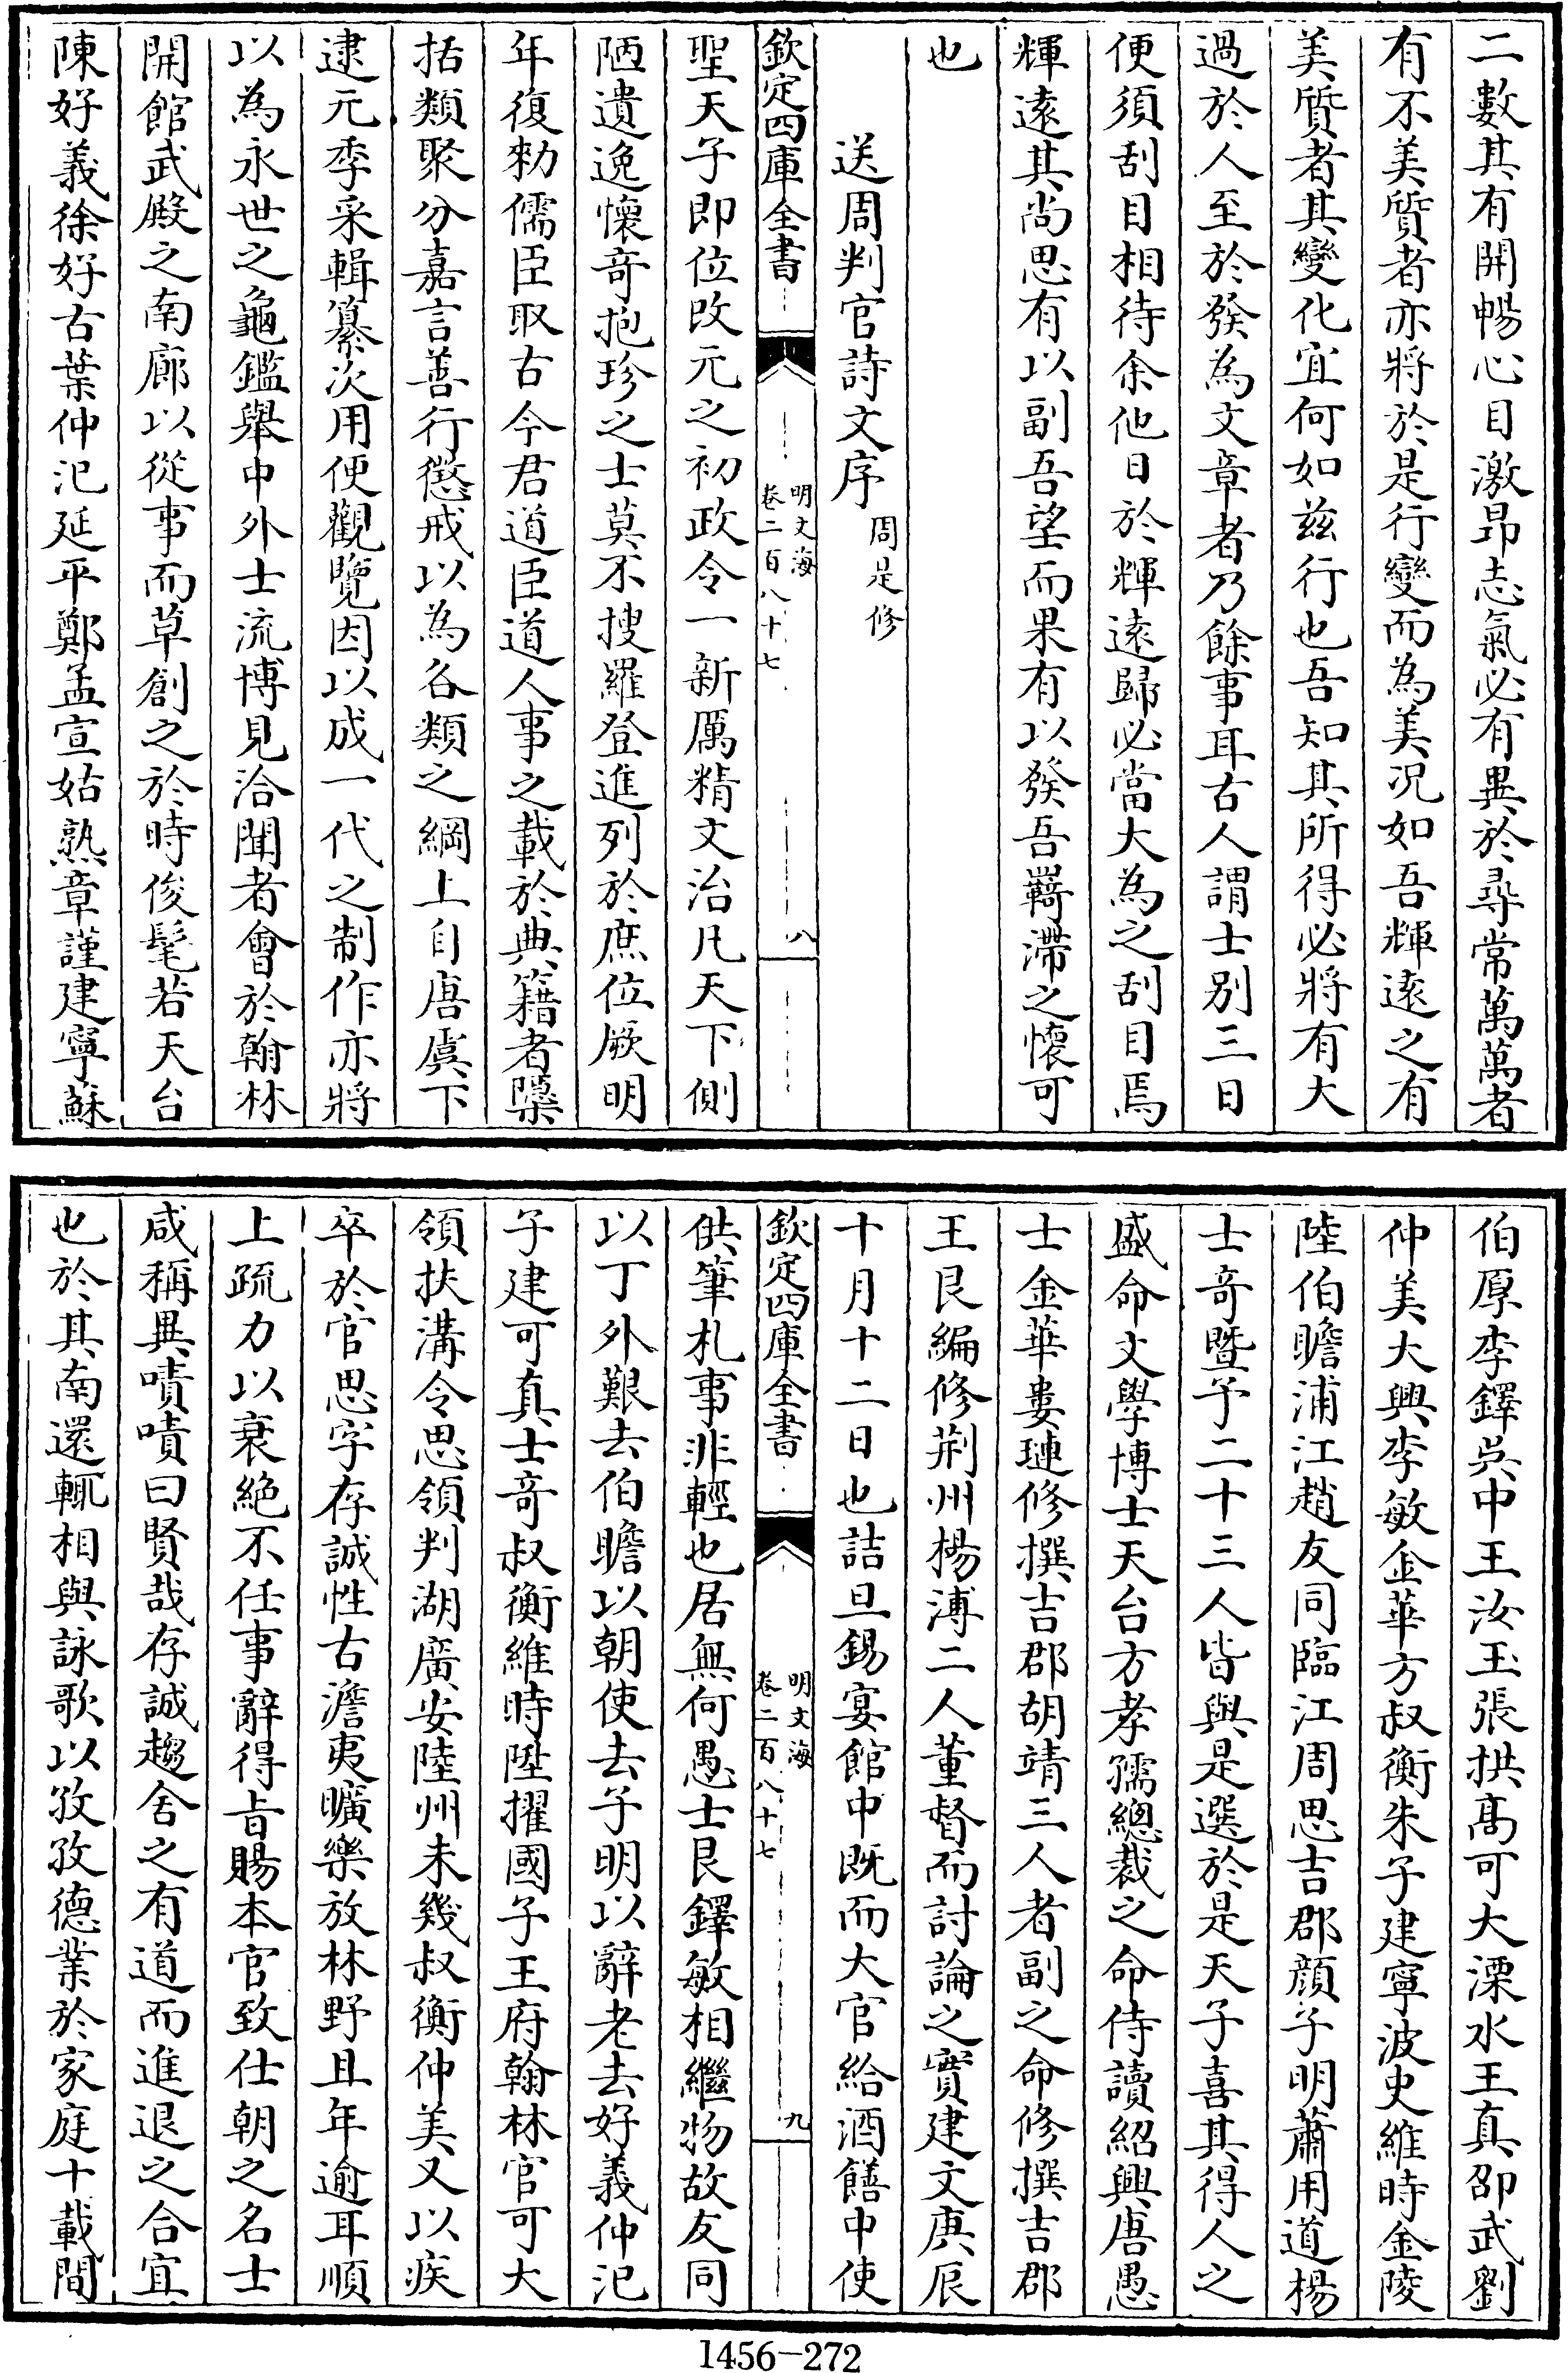 二數其有開暢心目激昂志氣必有異於尋常萬萬者
有不美質者亦將於是行變而為美况如吾輝遠之有
美質者其變化宜何如兹行也吾知其所得必將有大
過於人至於發為文章者乃餘事耳古人謂士别三日
便須刮目相待余他日於輝遠歸必當大為之刮目焉
輝遠其尚思有以副吾望而果有以發吾羇滯之懷可
也
送周判官詩文序 周是修
欽定四庫全書 明文海 卷二百八十七 八
聖天子即位改元之初政令一新厲精文治凡天下側
陋遺逸懷竒抱珍之士莫不搜羅登進列於庶位厥明
年復勑儒臣取古今君道臣道人事之載於典籍者櫽
括類聚分嘉言善行懲戒以為各類之綱上自唐虞下
逮元季采輯纂次用便觀覽因以成一代之制作亦將
以為永世之龜鑑舉中外士流博見洽聞者會於翰林
開館武殿之南廊以從事而草創之於時俊髦若天台
陳好義徐好古葉仲汜延平鄭孟宣姑熟章謹建寧蘇
伯厚李鐸吳中王汝玉張拱高可大溧水王真邵武劉
仲美大興李敏金華方叔衡朱子建寧波史維時金陵
陸伯瞻浦江趙友同臨江周思吉郡顔子明蕭用道楊
士竒暨予二十三人皆與是選於是天子喜其得人之
盛命文學博士天台方孝孺總裁之命侍讀紹興唐愚
士金華婁璉修撰吉郡胡靖三人者副之命修撰吉郡
王艮編修荆州楊溥二人董督而討論之實建文庚辰
十月十二日也詰旦錫宴館中既而大官給酒饍中使
欽定四庫全書 明文海 卷二百八十七 九
供筆札事非輕也居無何愚士艮鐸敏相繼物故友同
以丁外艱去伯瞻以朝使去子明以辭老去好義仲汜
子建可真士竒叔衡維時陞擢國子王府翰林官可大
領扶溝令思領判湖廣安陸州未幾叔衡仲美又以疾
卒於官思字存誠性古澹夷曠樂放林野且年逾耳順
上疏力以衰絶不任事辭得旨賜本官致仕朝之名士
咸稱異嘖嘖曰賢哉存誠趨舍之有道而進退之合宜
也於其南還輒相與詠歌以孜孜德業於家庭十載間
1456-272